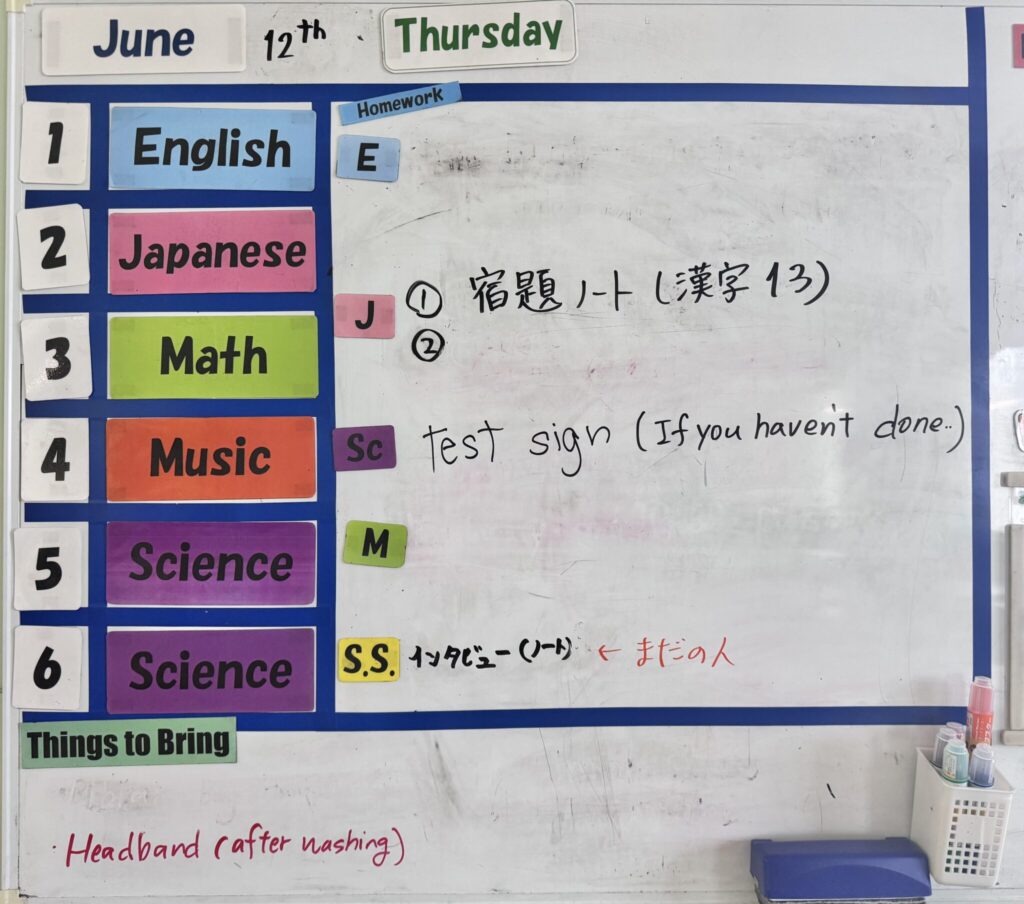 June 12th Thursday
Homework
1 English E
2 Japanese
J ① 宿題ノート (漢字13)
②
3 Math
4 Music
Sc test sign (If you haven't done..)
5 Science
M
6 Science
S.S. インタビュー(ノート) ← まだの人
Things to Bring
・Headband (after washing)